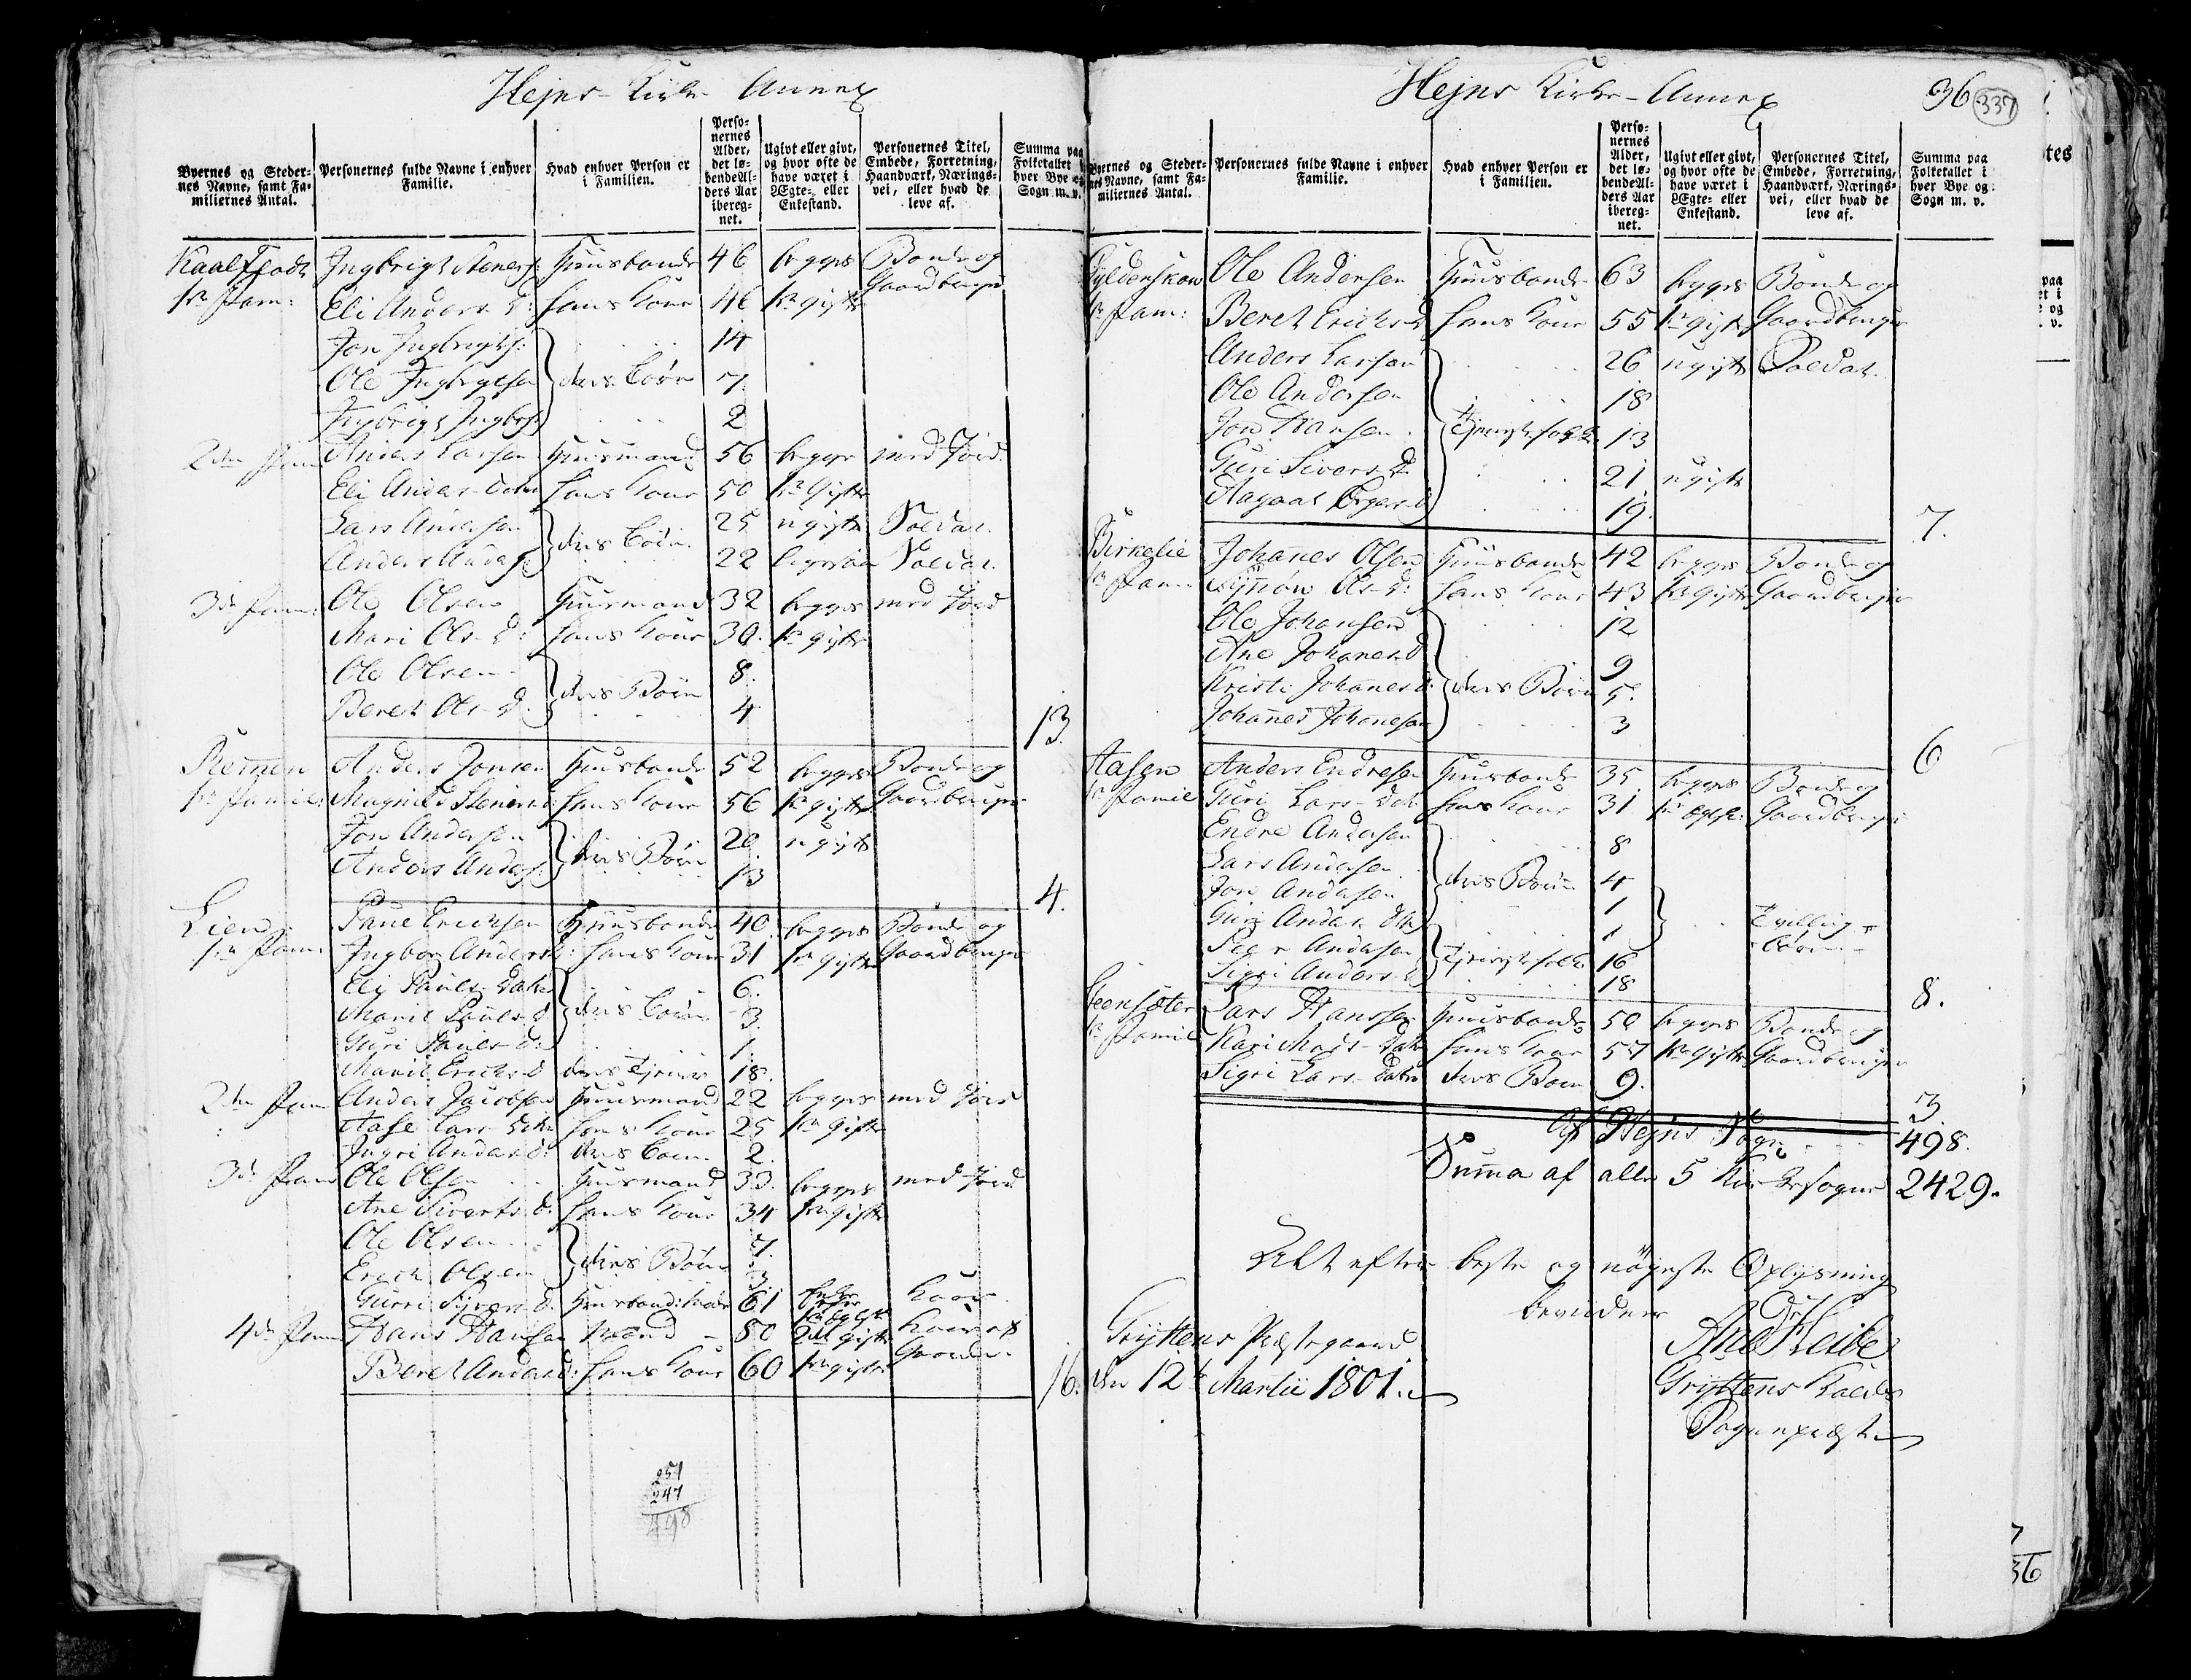 Hejns Kirke Annex
Byernes og Steder-
nes Navne, samt Fa-
miliernes Antal.
Personernes fulde Navne i enhver
Familie.
Hvad enhver Person er
i Familien.
Perso-
nernes
Alder,
det lø-
bende Al-
ders Aar
ibereg-
net.
Ugivt eller givt,
og hvor ofte de
have været i
Ægte- eller
Enkestand.
Personernes Titel,
Embede, Forretning,
Haandværk, Nærings-
vei, eller hvad de
leve af.
Summa paa
Folketallet i
hver Bye og
Sogn m. v.
1te Fam: Huusbonde 46 begges Bonde og
Eli Anders d: hans Kone 46 1te gifte Gaardbruger
Jon Ingbrigts: 14
Ole Ingbrigtsen deres Børn 7.
2
2den Fam Anders Larsen Huusmand 56 begges med Jord.
Eli Anders Datter hans Kone 50 1te Gifte
Lars Andersen 25 ugift Soldat.
Anders Anders: deres Børn. 22 ligesaa Soldat.
3de Fam: Ole Olsen Huusmand 32 begges med Jord
Mari Ols-d: hans Kone 30. 1te gifte
Ole Olsen 8.
Beret Ols-d. deres Børn 4
13.
Anders Jonsen Huusbonde 52 begges Bonde og
1te Famil: Magnild Steners d: hans Kone 56 1te gifte Gaardbruger
Jon Andersen 20. ugift
Anders Anders: deres Børn 13
4.
Lien Paul Erichsen Huusbonde 40. begges Bonde og
1te Fam: Ingbor Anders d: hans Kone 31 1te gifte Gaardbruger
Eli Pauls Datter 6.
Marit Pauls d deres Børn 3.
Guri Pauls-d: 1.
Marit Erichs d deres Tjener 18.
2den Fam Anders Jacobsen Huusmand 22 begges med Jord
Aase Lars Dtr hans Kone 25 1te Gifte
Ingri Anders d: deres Barn. 2.
3de Fam Ole Olsen Huusmand 33. begges med Jord
Ane Siverts d: hans Kone 34 1te gifte
Ole Olsen 7.
Erich Olsen deres Børn 3.
61
4de Fam Hans Hansen Mand 80 2det gifte
Beret Anders d: hans Kone 60 1te gifte
16.
251
247
498
Hejns Kirke-Annex
36 337
Byernes og Steder-
nes Navne, samt Fa-
miliernes Antal.
Personernes fulde Navne i enhver
Familie.
Hvad enhver Person er
i Familien.
Perso-
nernes
Alder,
det lø-
bende Al-
ders Aar
ibereg-
net.
Ugivt eller givt,
og hvor ofte de
have været i
Ægte- eller
Enkestand.
Personernes Titel,
Embede, Forretning,
Haandværk, Nærings-
vei, eller hvad de
leve af.
Summa paa
Folketallet i
hver Bye og
Sogn m. v.
Gyldenskow Ole Andersen Huusbonde 63 begges Bonde og
1te Fam: Beret Erichs-d hans Kone 55 1te gifte Gaardbruger
Anders Larsen 26 ugift Soldat.
Ole Andersen 18
Jon Hansen Tjenestefolk 13
Guri Sivers-d. 21 ugift
19.
7.
Birkelie Johanes Olsen Huusbonde 42 begges Bonde og
1te Fam. Synnøw Ols-d: hans Kone 43 1te Gifte Gaardbruger
Ole Johansen 12
Ane Johanes d 9
Kristi Johanes d: deres Børn 5.
Johanes Johanesen 3
6
Aasen Anders Endresen Huusbonde 35. begges Bonde og
1te Famil Guri Lars-Datr hans Kone 31 1te Gaardbruger
Endre Andersen 8
Lars Andersen 4
Jon Andersen deres Børn 1
Guri Anders Dtr 1 Tvilling-
børn
Peer Andersen Tjenestefolk 16
Sigri Anders-d 18
8.
Lars Hansen Huusbonde 50 begges Bonde og
1te Famil Kari Mads-Datr hans Kone 57 1te Gifte Gaardbruger
Sigri Lars-Datr deres Barn 9.
3
Af Hejns Sogn 498.
Summa af alle 5 Kirkesogne 2429.
Alt efter beste og nøyeste Oplysning
bevidner
Gryttens Præstegaard
den 12te Martii 1801.
Gryttens Kalds
Sognepræst